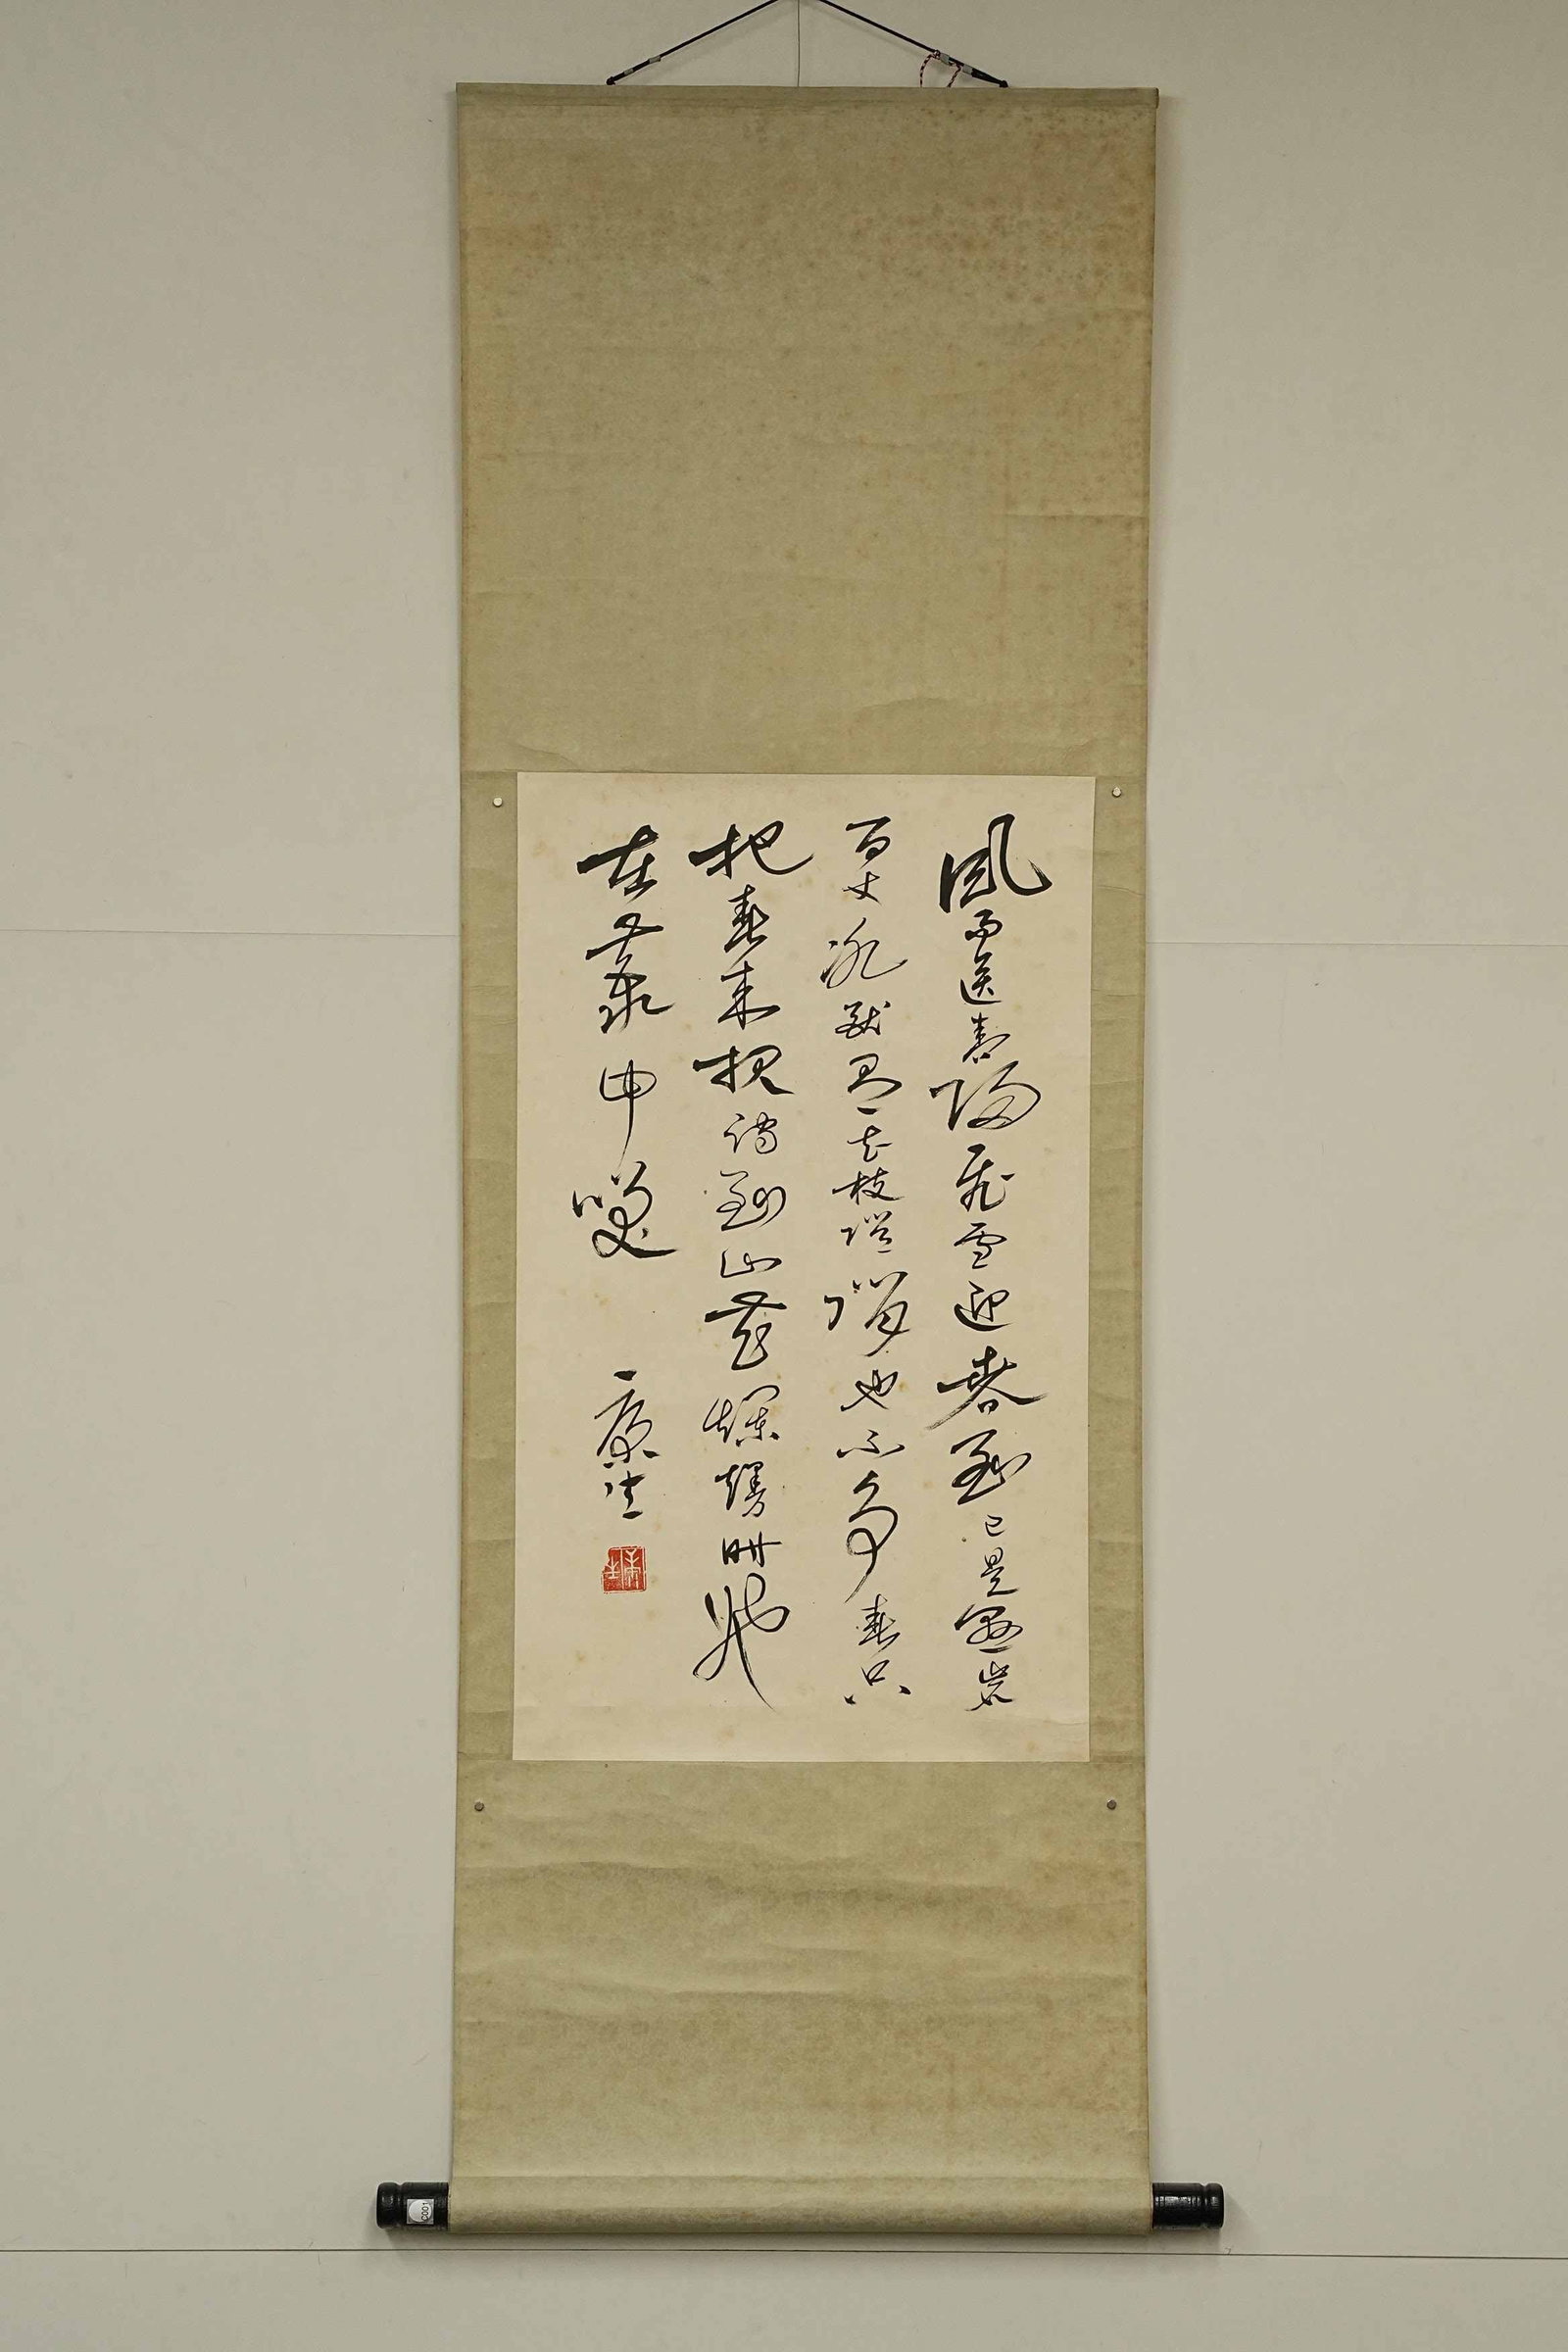 風雨送春歸飛雪迎春到已是懸岩
百丈冰猶有花枝俏俏也不爭春只
把春來報待到山花爛熳時她
在叢中笑
康生
康生
C001